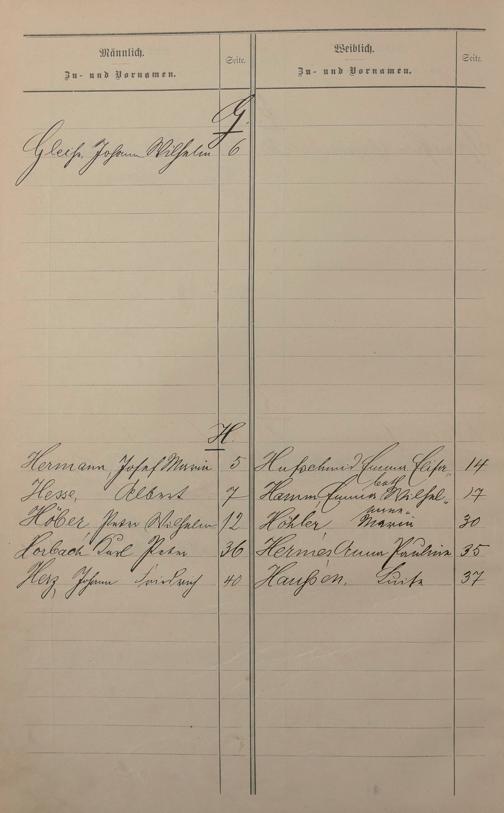 Männlich.
Zu- und Vornamen.
Seite.
Weiblich.
Zu- und Vornamen.
Seite.
G.
Gleiß, Johann Wilhelm 6
H.
Hermann, Josef Maria 5
Hesse, Albert 7
Höber, Peter Wilhelm 12
Horbach Karl Peter 36
Herz, Johann Friedrich 40
Hufschmid Emma Elisa- 14
beth
Hamm Emma Wilhel- 17
mine
Höhler, Maria 30
Hermes Anna Pauline 35
37